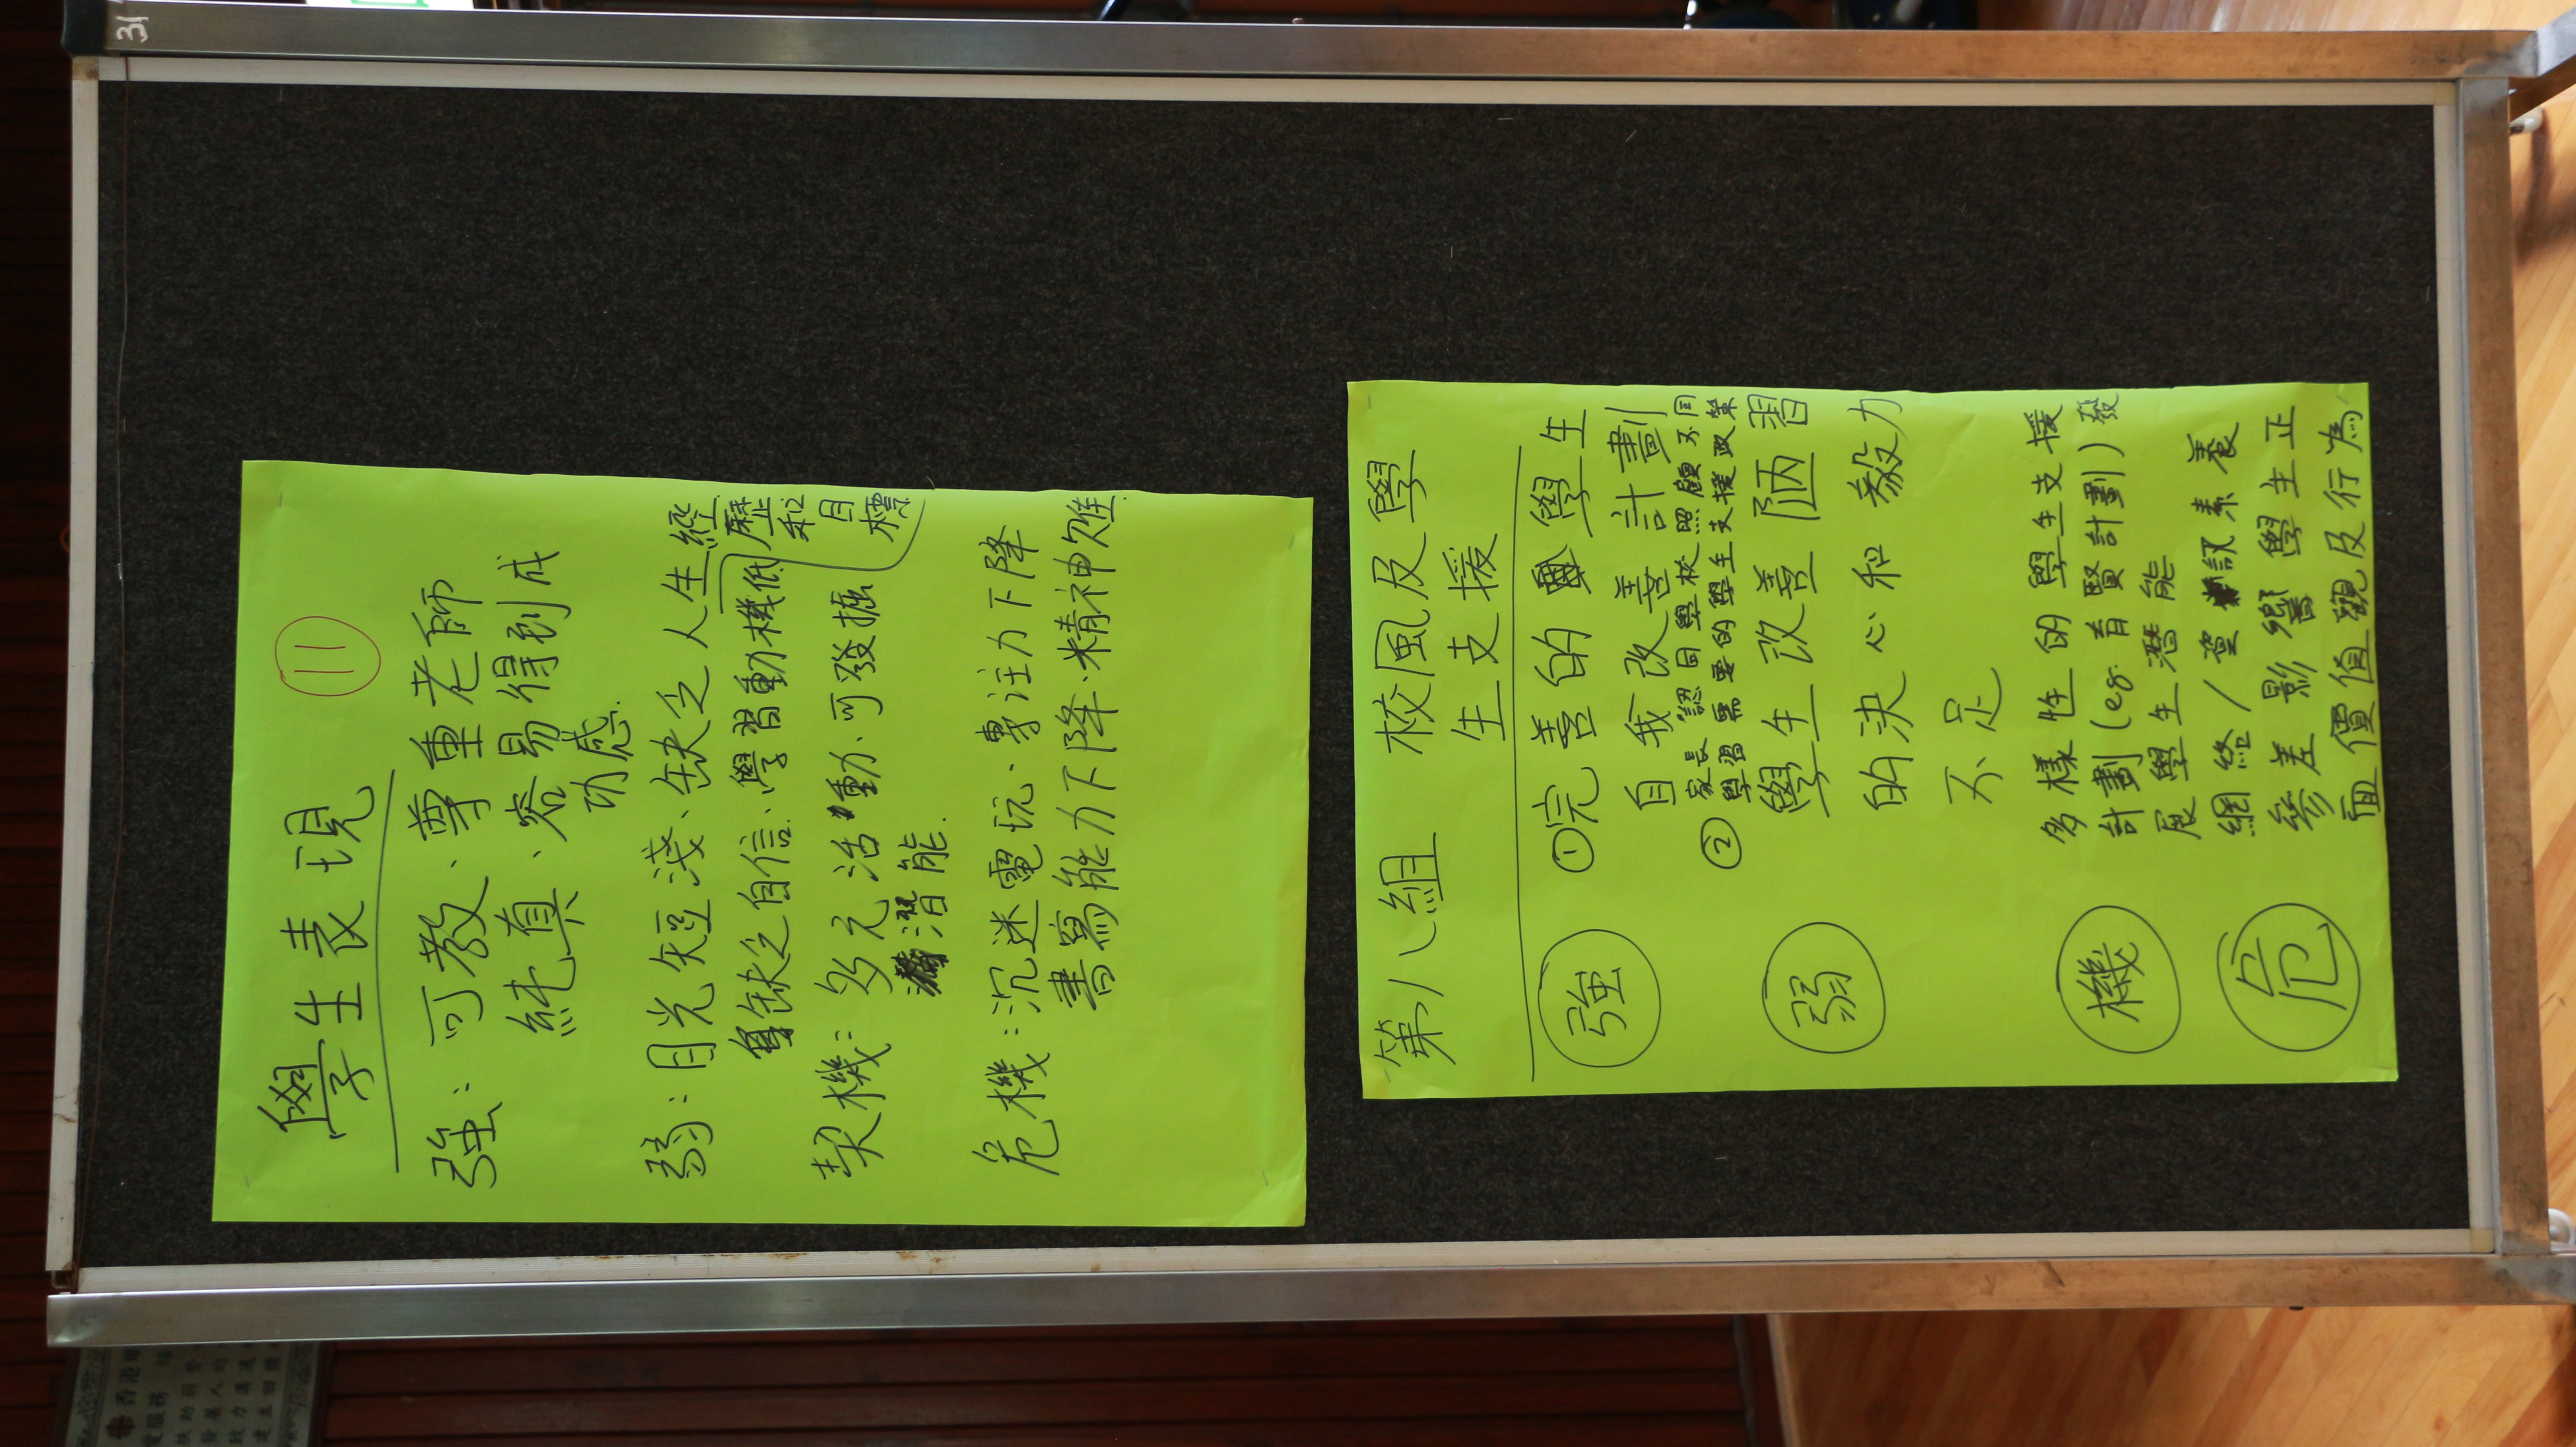 31
學生表現 11
強：可教、尊重老師
純真、容易得到成
功感.
弱：目光短淺、缺乏人生經
歷和
目
標
缺乏自信、學習動機低
契機：多元活動、可發掘
潛能.
危機：沉迷電玩、專注力下降
書寫能力下降、精神難
第八組 校風及學
生支援
強 ① 完善的學生
自我改善計劃
② 家長認同學校照顧不同
學習需要的學生支援政策
弱 學生改善陋習
的決心和毅力
不足
機 多樣性的學生支援
計劃(eg. 育賢計劃)發
展學生潛能
危 網絡/資訊素養
參差影響學生正
面價值觀及行為
香港
服務
扶助弱勢
發展人的